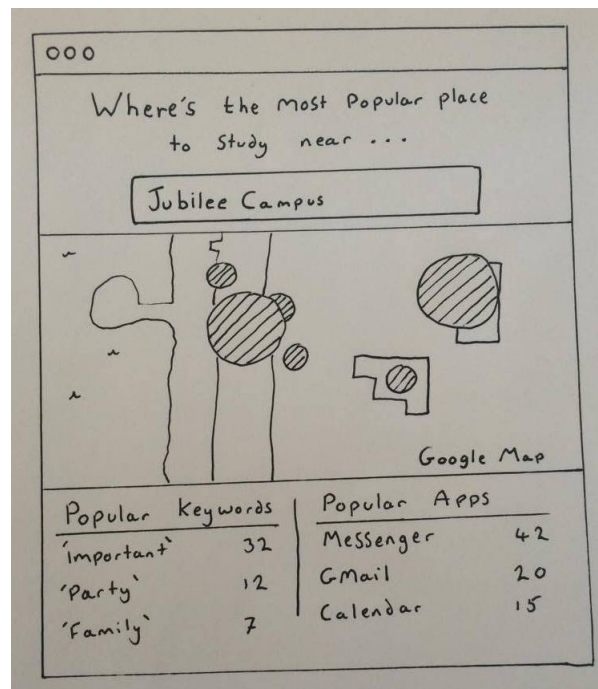 Where's the most Popular place
to Study near ...
Jubilee Campus
Google Map
Popular Keywords
'important' 32
'Party' 12
'Family' 7
Popular Apps
Messenger 42
GMail 20
Calendar 15